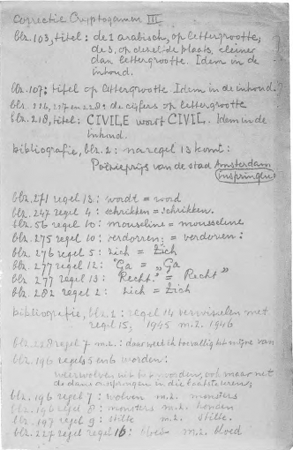 Correctie Cryptogamen III
blz. 103, titel: de 2 arabisch, op lettergrootte,
de 3, op dezelfde plaats, kleiner
dan lettergrootte. Idem in de
inhoud.
blz. 107: titel op lettergrootte Idem in de inhoud.
en 222: de cijfers op lettergrootte
blz. 218, titel: CIVILE wordt CIVIL. Idem in de
inhoud.
bibliografie, blz. 2: na regel 13 komt:
Poëzieprijs van de stad Amsterdam
inspringen
blz. 271 regel 13: wordt = word
blz. 247 regel 4: schrikken = schrikken.
blz. 56 regel 10: mouseline = mousseline
blz. 275 regel 10: verdorren; = verdoren:
blz. 276 regel 5: zich = Zich
blz. 277 regel 12: "Ga = „Ga
blz. 277 regel 13: Recht." = Recht"
blz. 282 regel 2: zich = Zich
bibliografie, blz. 2: regel 14 verwisselen met
regel 15; 1945 m.z. 1946
regel 7 m.z.:
blz. 196 regel 5 en 6 worden:
weerwolven uit
de dans ontspringen in die laatste
blz. 196 regel 7: wolven m.z. monsters
blz. 196 regel 8: monsters m.z. honden
blz. 197 regel 9: stille m.z. stille.
blz. 227 regel 16: bloed m.z. bloed